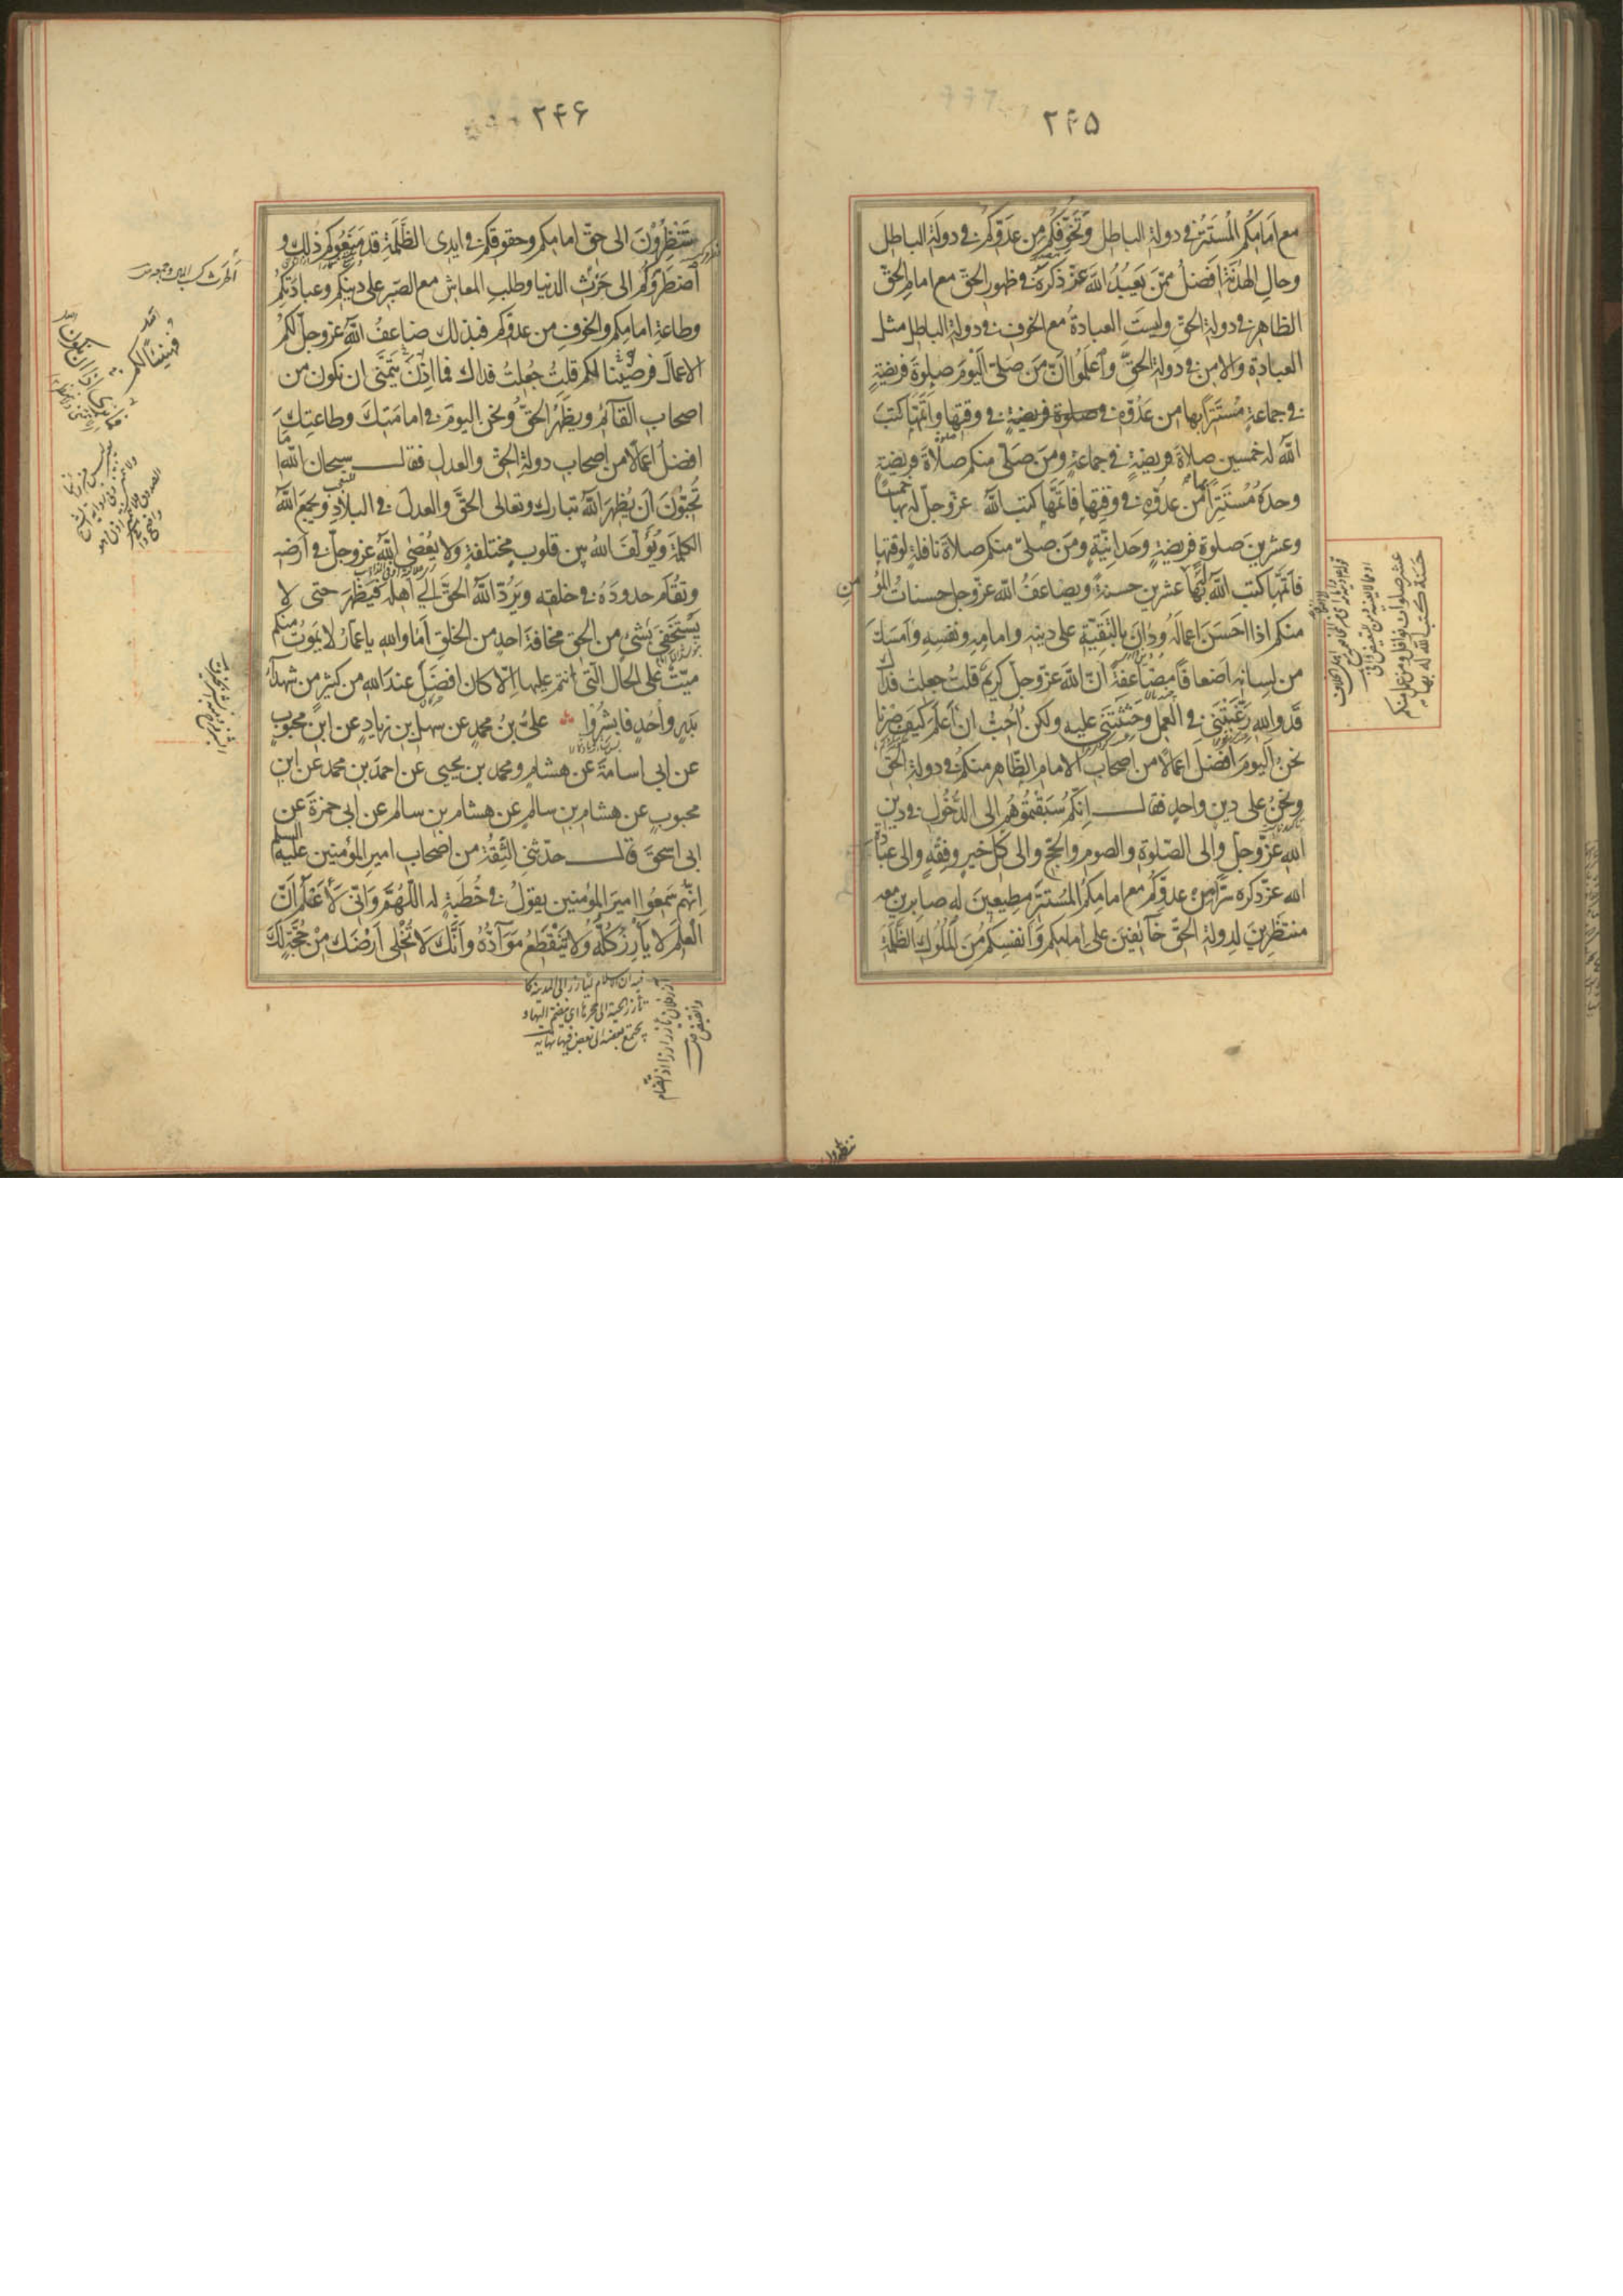 ۲۴۵
مع امامكم المستتر فی دولة الباطل وتخوفكم من عدوكم فی دولة الباطل
وحال الهدنة افضل ممن يعبد الله عز ذكره فی ظهور الحق مع امام الحق
الظاهر فی دولة الحق وليست العبادة مع الخوف فی دولة الباطل مثل
العبادة والامن فی دولة الحق واعلموا ان من صلی اليوم صلوة فريضة
فی جماعة مستترا بها من عدوه فی وقتها واتمها كتب
الله له خمسين صلاة فريضة فی جماعة ومن صلی منكم صلاة فريضة
وحده مستترا بها من عدوه فی وقتها فاتمها كتب الله عز وجل له بها خمسا
وعشرين صلوة فريضة وحدانية ومن صلی منكم صلاة نافلة لوقتها
فاتمها كتب الله له بها عشرين حسنة ويضاعف الله عز وجل حسنات المؤمن
منكم اذا احسن اعماله ودان بالتقية علی دينه وامامه ونفسه وامسك
من لسانه اضعافا مضاعفة ان الله عز وجل كريم قلت جعلت فداك
قد والله رغبتنی فی العمل وحثثتنی عليه ولكن احب ان اعلم كيف صرنا
نحن اليوم افضل اعمالا من اصحاب الامام الظاهر منكم فی دولة الحق
ونحن علی دين واحد فقال انكم سبقتموهم الی الدخول فی دين
الله عز وجل والی الصلوة والصوم والحج والی كل خير وفقه والی عبادة
الله عز ذكره سرا من عدوكم مع امامكم المستتر مطيعين له صابرين معه
منتظرين لدولة الحق خائفين علی امامكم وانفسكم من الملوك الظلمة
عشر صلوات نوافل ومن عمل منكم
حسنة كتب الله له بها
تنظرون
۲۴۶
تنظرون الی حق امامكم وحقوقكم فی ايدی الظلمة قد منعوكم ذلك و
اضطروكم الی حرث الدنيا وطلب المعاش مع الصبر علی دينكم وعبادتكم
وطاعة امامكم والخوف من عدوكم فبذلك ضاعف الله عز وجل لكم
الاعمال فهنيئا لكم قلت جعلت فداك فما اذن نتمنی ان نكون من
اصحاب القائم ويظهر الحق ونحن اليوم فی امامتك وطاعتك
افضل اعمالا من اصحاب دولة الحق والعدل فقال سبحان الله اما
تحبون ان يظهر الله تبارك وتعالی الحق والعدل فی البلاد ويجمع الله
الكلمة ويؤلف الله بين قلوب مختلفة ولا يعصی الله عز وجل فی ارضه
وتقام حدوده فی خلقه ويرد الله الحق الی اهله فيظهر حتی لا
يستخفی بشیء من الحق مخافة احد من الخلق اما والله يا عمار لا يموت منكم
ميت علی الحال التی انتم عليها الا كان افضل عند الله من كثير من شهداء
بدر واحد فابشروا علی بن محمد عن سهل بن زياد عن ابن محبوب
عن ابی اسامة عن هشام ومحمد بن يحيی عن احمد بن محمد عن ابن
محبوب عن هشام بن سالم عن هشام بن سالم عن ابی حمزة عن
ابی اسحق قال حدثنی الثقة من اصحاب امير المؤمنين عليه السلم
انهم سمعوا امير المؤمنين يقول فی خطبة له اللهم وانی لاعلم ان
العلم لا يأرز كله ولا ينقطع مواده وانك لا تخلی ارضك من حجة لك
فهنيئا لكم
فيه ان الاسلام ليأرز الی المدينة كما
تأرز الحية الی جحرها ای ينضم اليها و
يجتمع بعضه الی بعض فيها نهاية